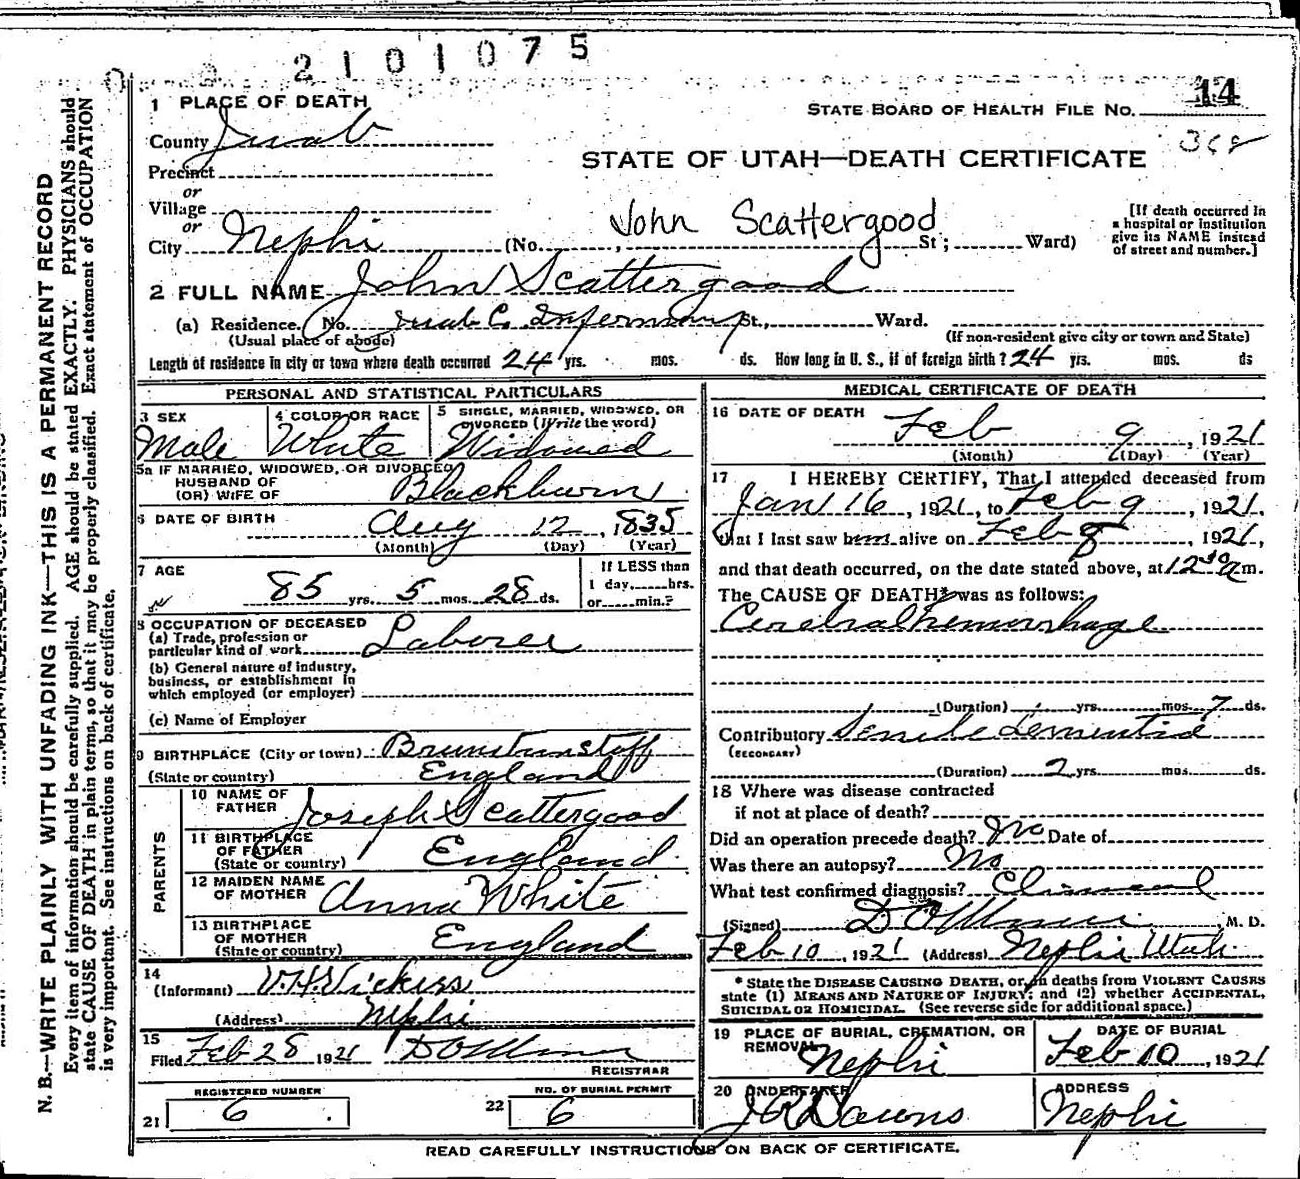 2101075
14
STATE BOARD OF HEALTH FILE No.
368
STATE OF UTAH—DEATH CERTIFICATE
1 PLACE OF DEATH
County Juab
Precinct
or
Village
or
City Nephi (No. , St; Ward)
John Scattergood
[If death occurred in a hospital or institution give its NAME instead of street and number.]
2 FULL NAME John Scattergood
(a) Residence. No. Juab C. Infermary St., Ward.
(Usual place of abode) (If non-resident give city or town and State)
Length of residence in city or town where death occurred 24 yrs. mos. ds. How long in U. S., if of foreign birth? 24 yrs. mos. ds
PERSONAL AND STATISTICAL PARTICULARS
3 SEX Male
4 COLOR OR RACE White
5 SINGLE, MARRIED, WIDOWED, OR DIVORCED (Write the word) Widowed
5a IF MARRIED, WIDOWED, OR DIVORCED
HUSBAND OF
(OR) WIFE OF Blackburn
6 DATE OF BIRTH Aug 12, 1835
(Month) (Day) (Year)
7 AGE
85 yrs. 5 mos. 28 ds.
If LESS than
1 day, hrs.
or min.?
8 OCCUPATION OF DECEASED
(a) Trade, profession or
particular kind of work Laborer
(b) General nature of industry,
business, or establishment in
which employed (or employer)
(c) Name of Employer
9 BIRTHPLACE (City or town)
(State or country) England
PARENTS
10 NAME OF FATHER Joseph Scattergood
11 BIRTHPLACE OF FATHER
(State or country) England
12 MAIDEN NAME OF MOTHER Anna White
13 BIRTHPLACE OF MOTHER
(State or country) England
14
(Informant)
(Address) Nephi
15
Filed Feb 28 1921
REGISTRAR
REGISTERED NUMBER
21 6
NO. OF BURIAL PERMIT
22 6
MEDICAL CERTIFICATE OF DEATH
16 DATE OF DEATH Feb 9, 1921
(Month) (Day) (Year)
17 I HEREBY CERTIFY, That I attended deceased from
Jan 16, 1921, to Feb 9, 1921,
that I last saw him alive on Feb 8, 1921,
and that death occurred, on the date stated above, at 12 30 a m.
The CAUSE OF DEATH* was as follows:
Cerebral hemorrhage
(Duration) yrs. mos. 7 ds.
Contributory Senile dementia
(SECONDARY)
(Duration) 2 yrs. mos. ds.
18 Where was disease contracted
if not at place of death?
Did an operation precede death? No Date of
Was there an autopsy? No
What test confirmed diagnosis? Clinical
(Signed) M. D.
Feb 10, 1921 (Address) Nephi Utah.
* State the DISEASE CAUSING DEATH, or, in deaths from VIOLENT CAUSES
state (1) MEANS AND NATURE OF INJURY; and (2) whether ACCIDENTAL,
SUICIDAL OR HOMICIDAL. (See reverse side for additional space.)
19 PLACE OF BURIAL, CREMATION, OR REMOVAL Nephi
DATE OF BURIAL
Feb 10, 1921
20 UNDERTAKER
ADDRESS
Nephi
READ CAREFULLY INSTRUCTIONS ON BACK OF CERTIFICATE.
N. B.—WRITE PLAINLY WITH UNFADING INK—THIS IS A PERMANENT RECORD
Every item of information should be carefully supplied. AGE should be stated EXACTLY. PHYSICIANS should
state CAUSE OF DEATH in plain terms, so that it may be properly classified. Exact statement of OCCUPATION
is very important. See instructions on back of certificate.